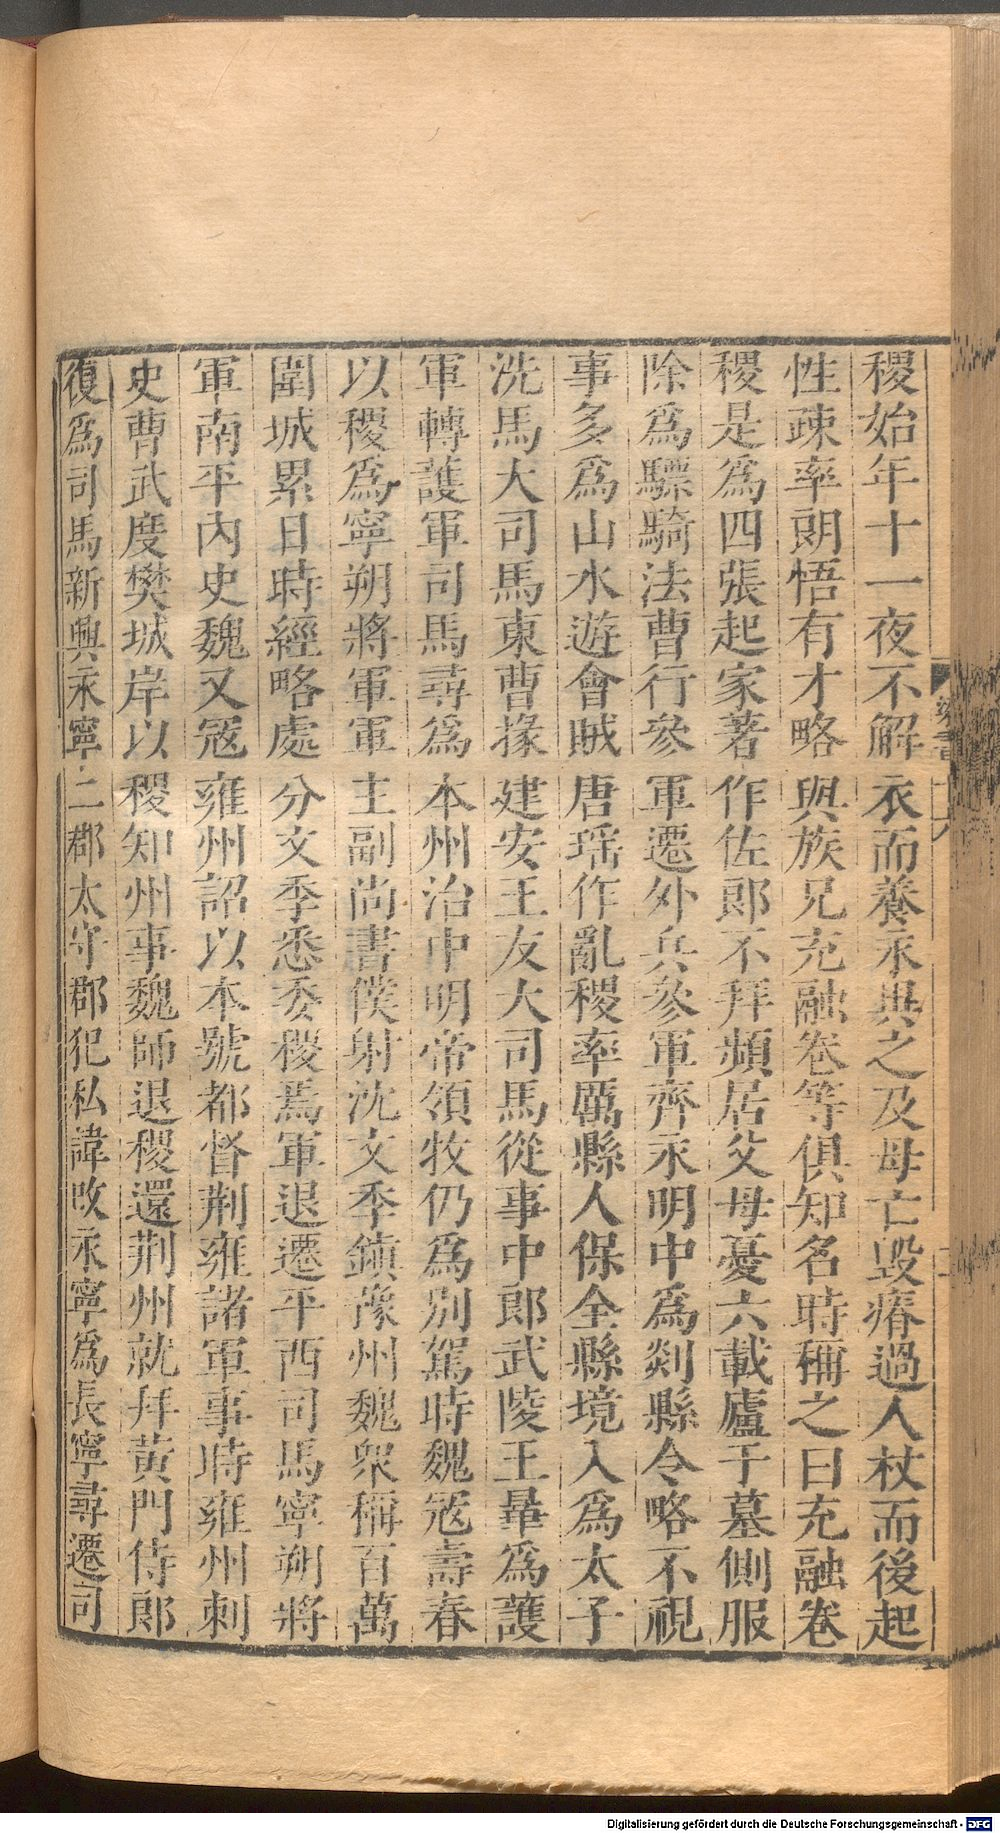 稷始年十一夜不解衣而養永興之及母亡毀瘠過人杖而後起
性疎率朗悟有才略與族兄充融卷等俱知名時稱之曰充融卷
稷是爲四張起家著作佐郎不拜頻居父母憂六載廬于墓側服
除爲驃騎法曹行參軍遷外兵參軍齊永明中爲剡縣令略不視
事多爲山水遊會賊唐瑶作亂稷率厲縣人保全縣境入爲太子
洗馬大司馬東曹掾建安王友大司馬從事中郎武陵王曅爲護
軍轉護軍司馬尋爲本州治中明帝領牧仍爲別駕時魏冦壽春
以稷爲寧朔將軍軍主副尚書僕射沈文季鎮豫州魏衆稱百萬
圍城累日時經略處分文季悉委稷焉軍退遷平西司馬寧朔將
軍南平內史魏又冦雍州詔以本號都督荆雍諸軍事時雍州刺
史曹武度樊城岸以稷知州事魏師退稷還荆州就拜黃門侍郎
復爲司馬新興永寧二郡太守郡犯私諱改永寧爲長寧尋遷司
梁書十六
二
Digitalisierung gefördert durch die Deutsche Forschungsgemeinschaft - DFG